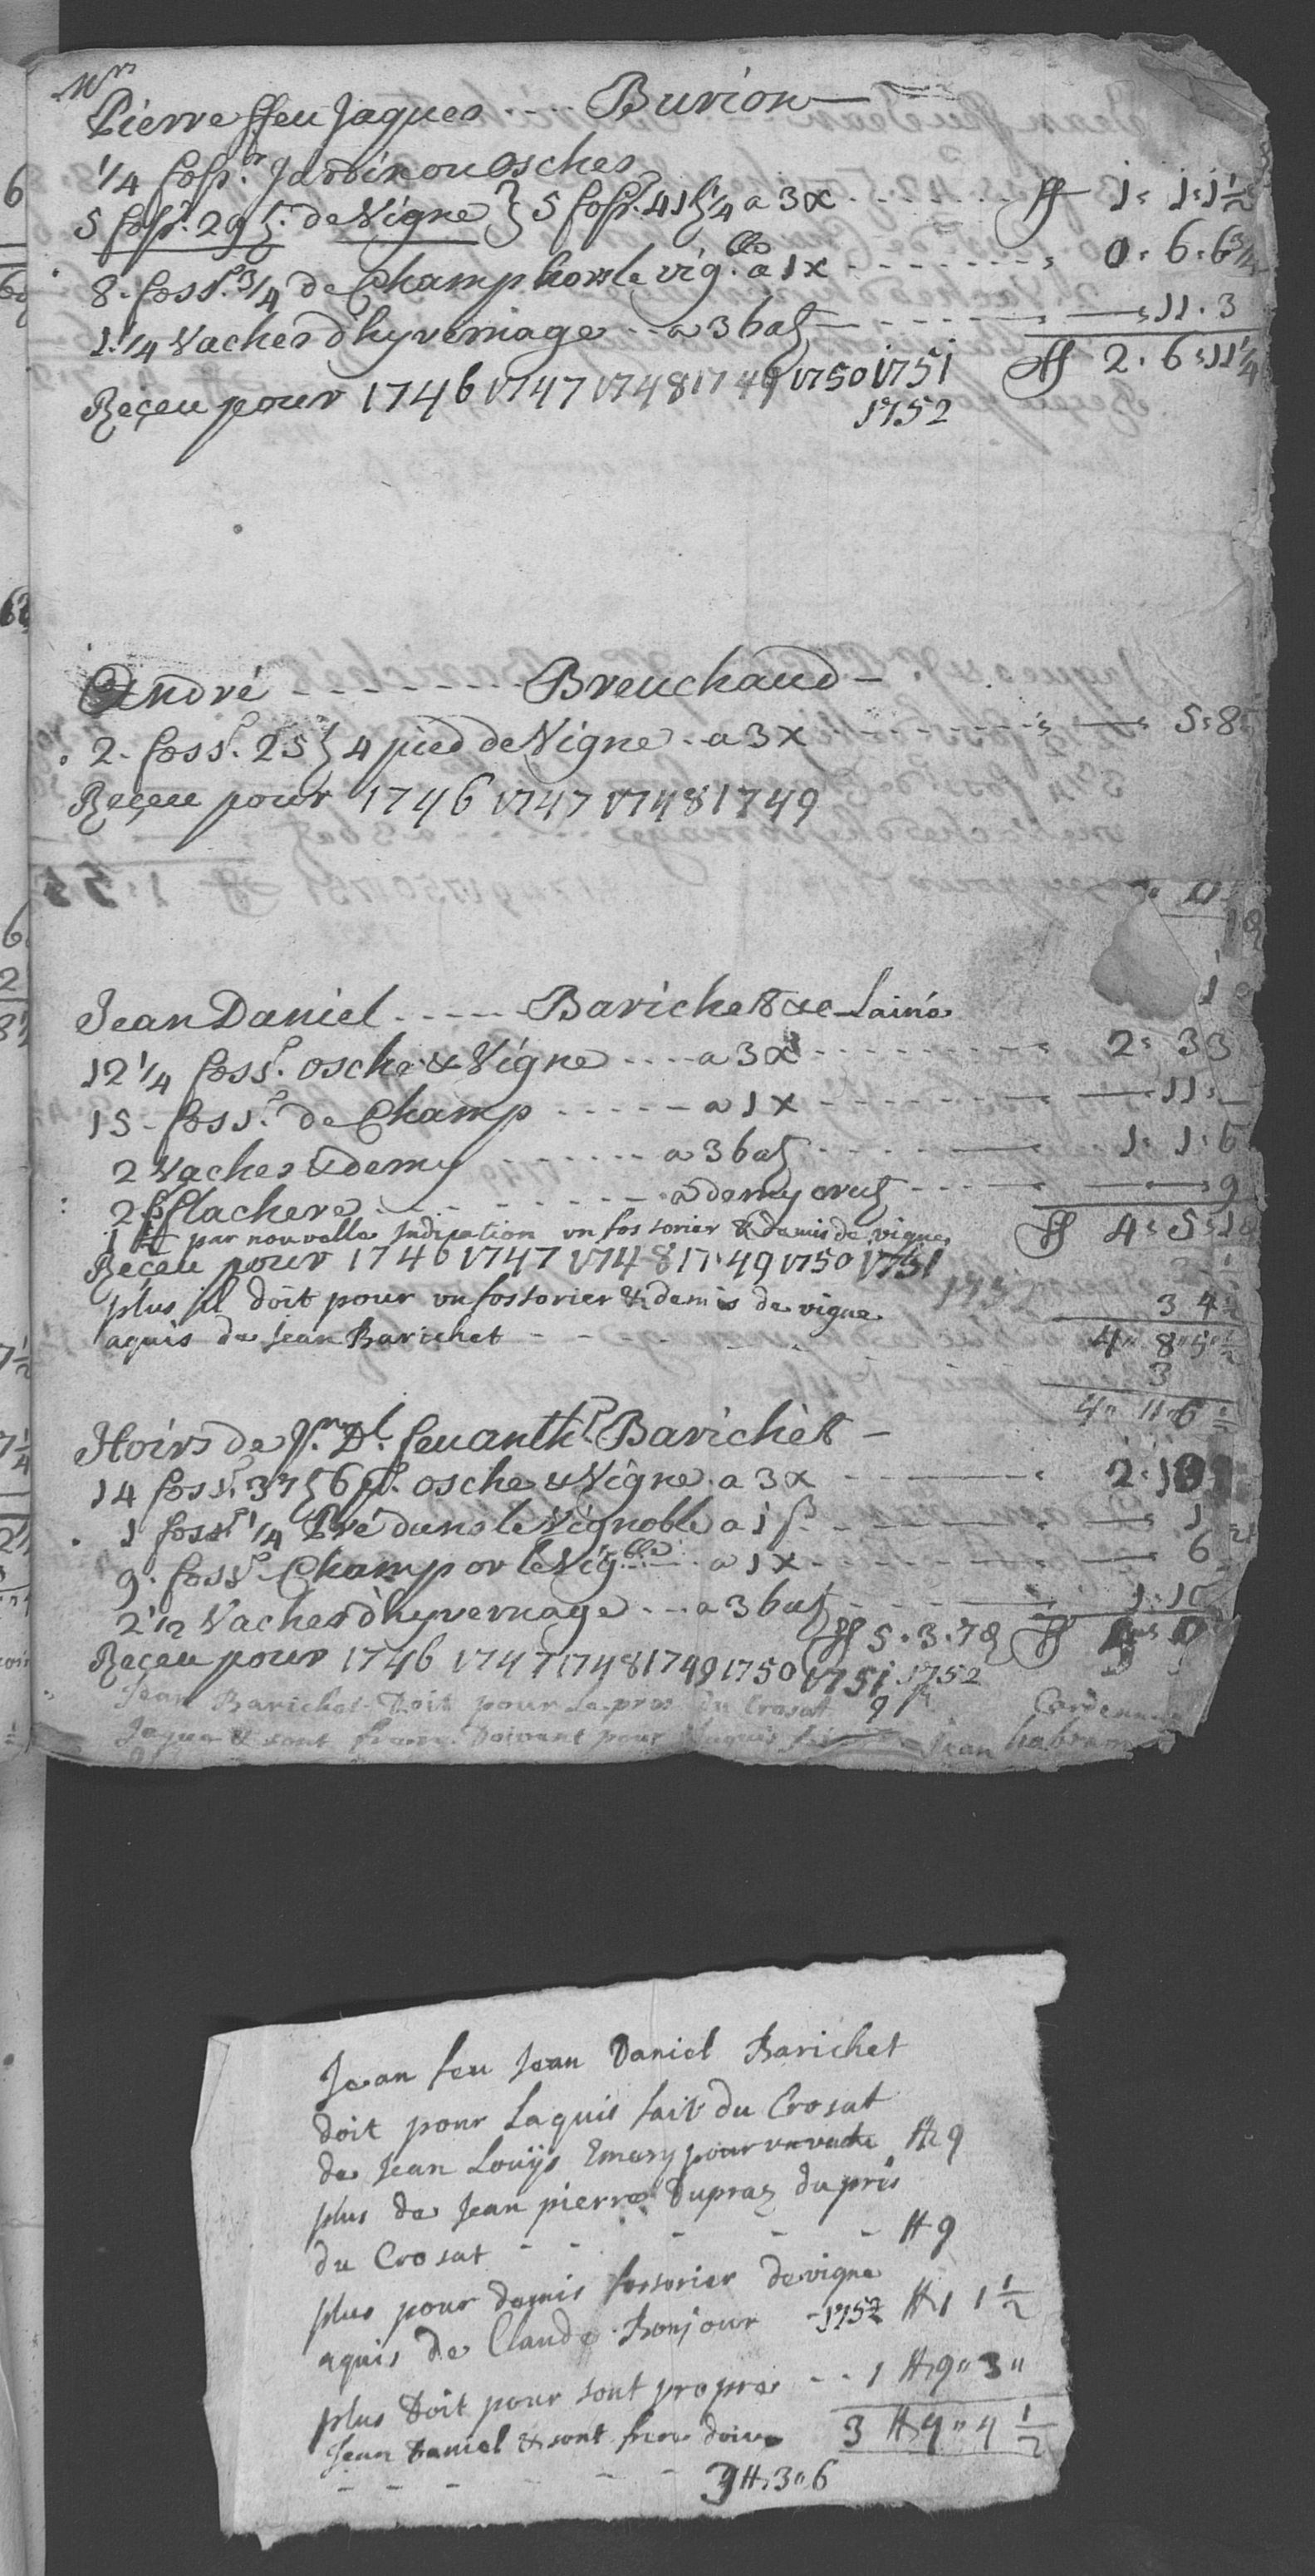 Mrs
Pierre ffeu Jaques ---- Burion
1/4 fossr. Jardin ou Osches
5 fossr. 29 ʒ. de Vigne } 5 fossr. 41 ʒ 1/4 a 3 x ------- ff 1: 1: 1 1/2
8. fossr. 3/4 de Champ hors le vig.ble a 1 x ------- 0: 6: 6 3/4
1. 1/4 Vaches dhyvernage -- a 3 batz ------- 11. 3
Reçeu pour 1746 1747 1748 1749 1750 1751 ff 2. 6: 11 1/4
1752
André ------- Breuchaud
2. fossr. 25 ʒ 4 pied de Vigne -- a 3 x ------- 5: 8
Reçeu pour 1746 1747 1748 1749
Jean Daniel ----- Barichet Lainé
12 1/4 fossr. osche & Vigne ---- a 3 x ------- 2: 3 3
15 - fossr. de Champ ----- a 1 x ------- 11:
2 Vaches & demy ------ a 3 batz ------- 1: 1: 6
2 ff lachere ------- a demy crutz ------- 9
1 ff par nouvelle Indication un fossorier & demis de vigne ff 4: 5: 1
Reçeu pour 1746 1747 1748 1749 1750 1751
1752
plus il doit pour un fossorier & demis de vigne 3 4 1/2
aquis de Jean Barichet - - - 4" 8" 5" 1/2
3
4" 11" 6 1/2
Hoirs de Jn. Dl. feu anthe. Barichet
14 fossr. 37 ʒ 6 pd. osche & Vigne. a 3 x ------- 2.
1 fossr. 1/4 Pré dans le Vignoble a 1 s ------- 1
9. fossr. Champ or le Vig.ble a 1 x ------- 6
2 1/2 Vaches d'hyvernage --- a 3 batz ------- 1: 1
ff 5. 3. 7 ff
Reçeu pour 1746 1747 1748 1749 1750 1751 1752
Jean Barichet Doit pour le pres du Crosat 9
Jaques & sont frere Doivent pour Jean
Jean feu Jean Daniel Barichet
doit pour Laquis fait du Crosat
de Jean Louÿs Emery pour un vache ff 9
plus de Jean pierre Dupraz du pris
du Crosat - - - - - ff 9
plus pour demis fossorier de vigne
aquis de Claude Bonjour - 1752 ff 1 1 1/2
plus Doit pour sont propre - - 1 ff 9" 3"
Jean Daniel & sont frere doive 3 ff 4" 4 1/2
- - - - - - 3 ff 3" 6